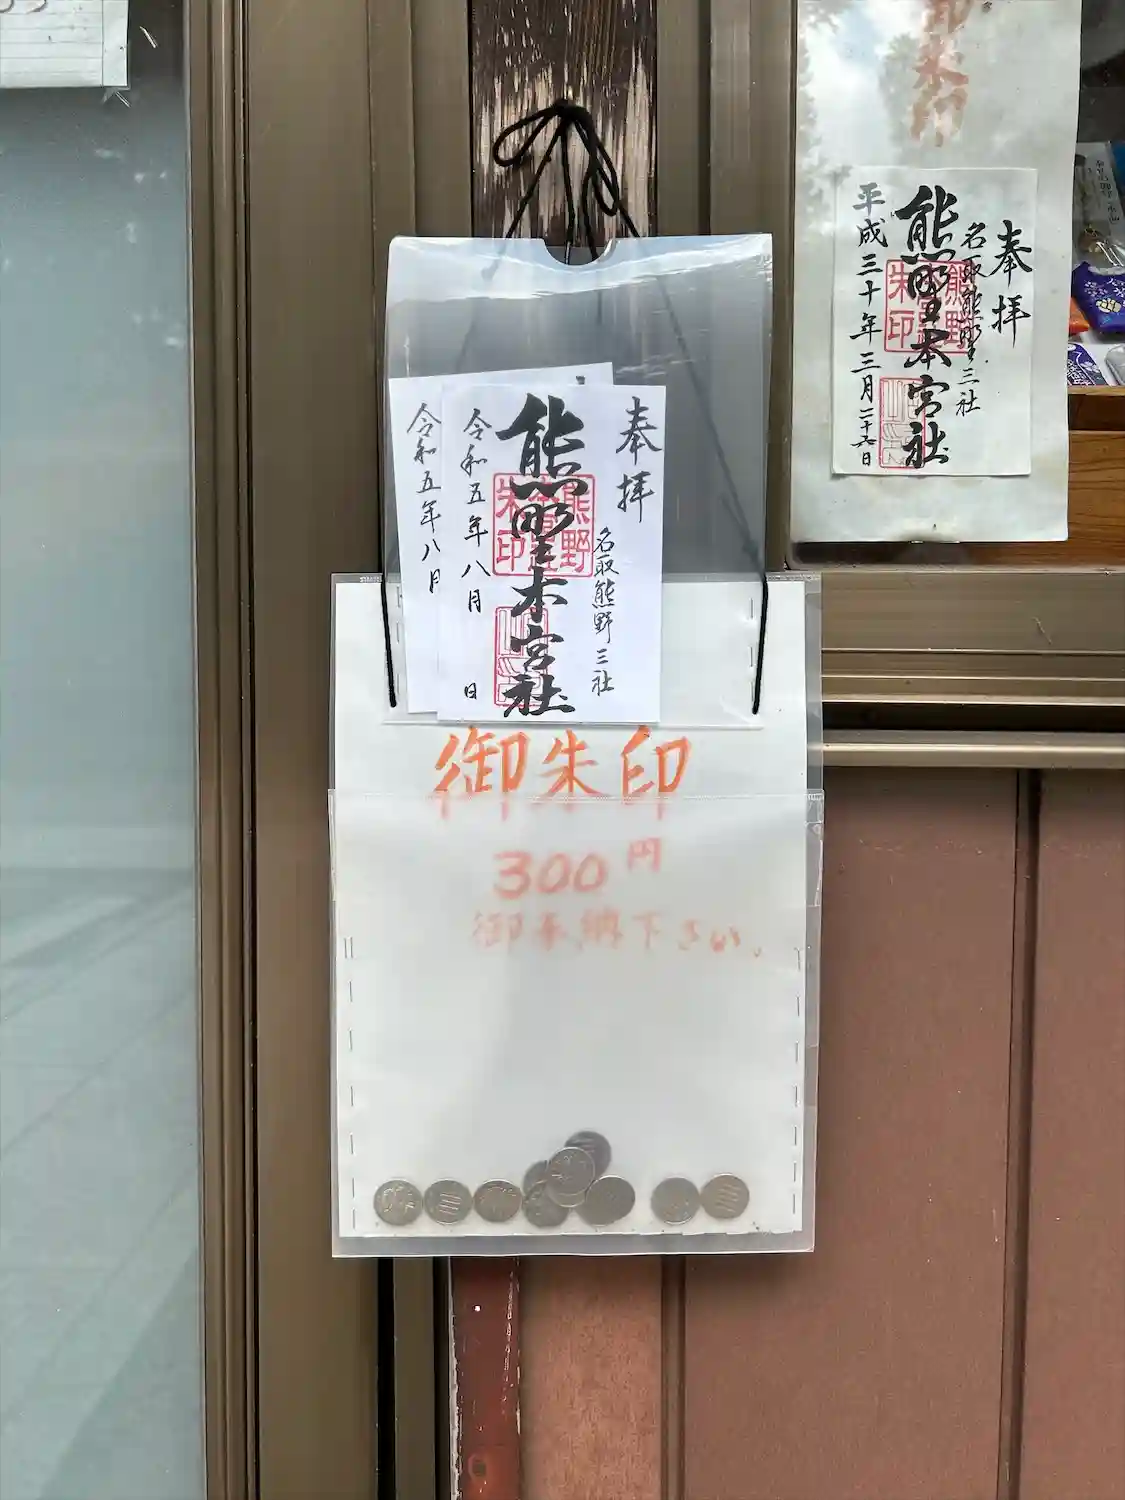 奉拝
名取熊野三社
熊野本宮社
熊野
本宮
朱印
令和五年八月 日
令和五年八月
御朱印
300円
御奉納下さい。
御朱印
奉拝
名取熊野三社
熊野本宮社
熊野
朱印
平成三十年三月二十六日